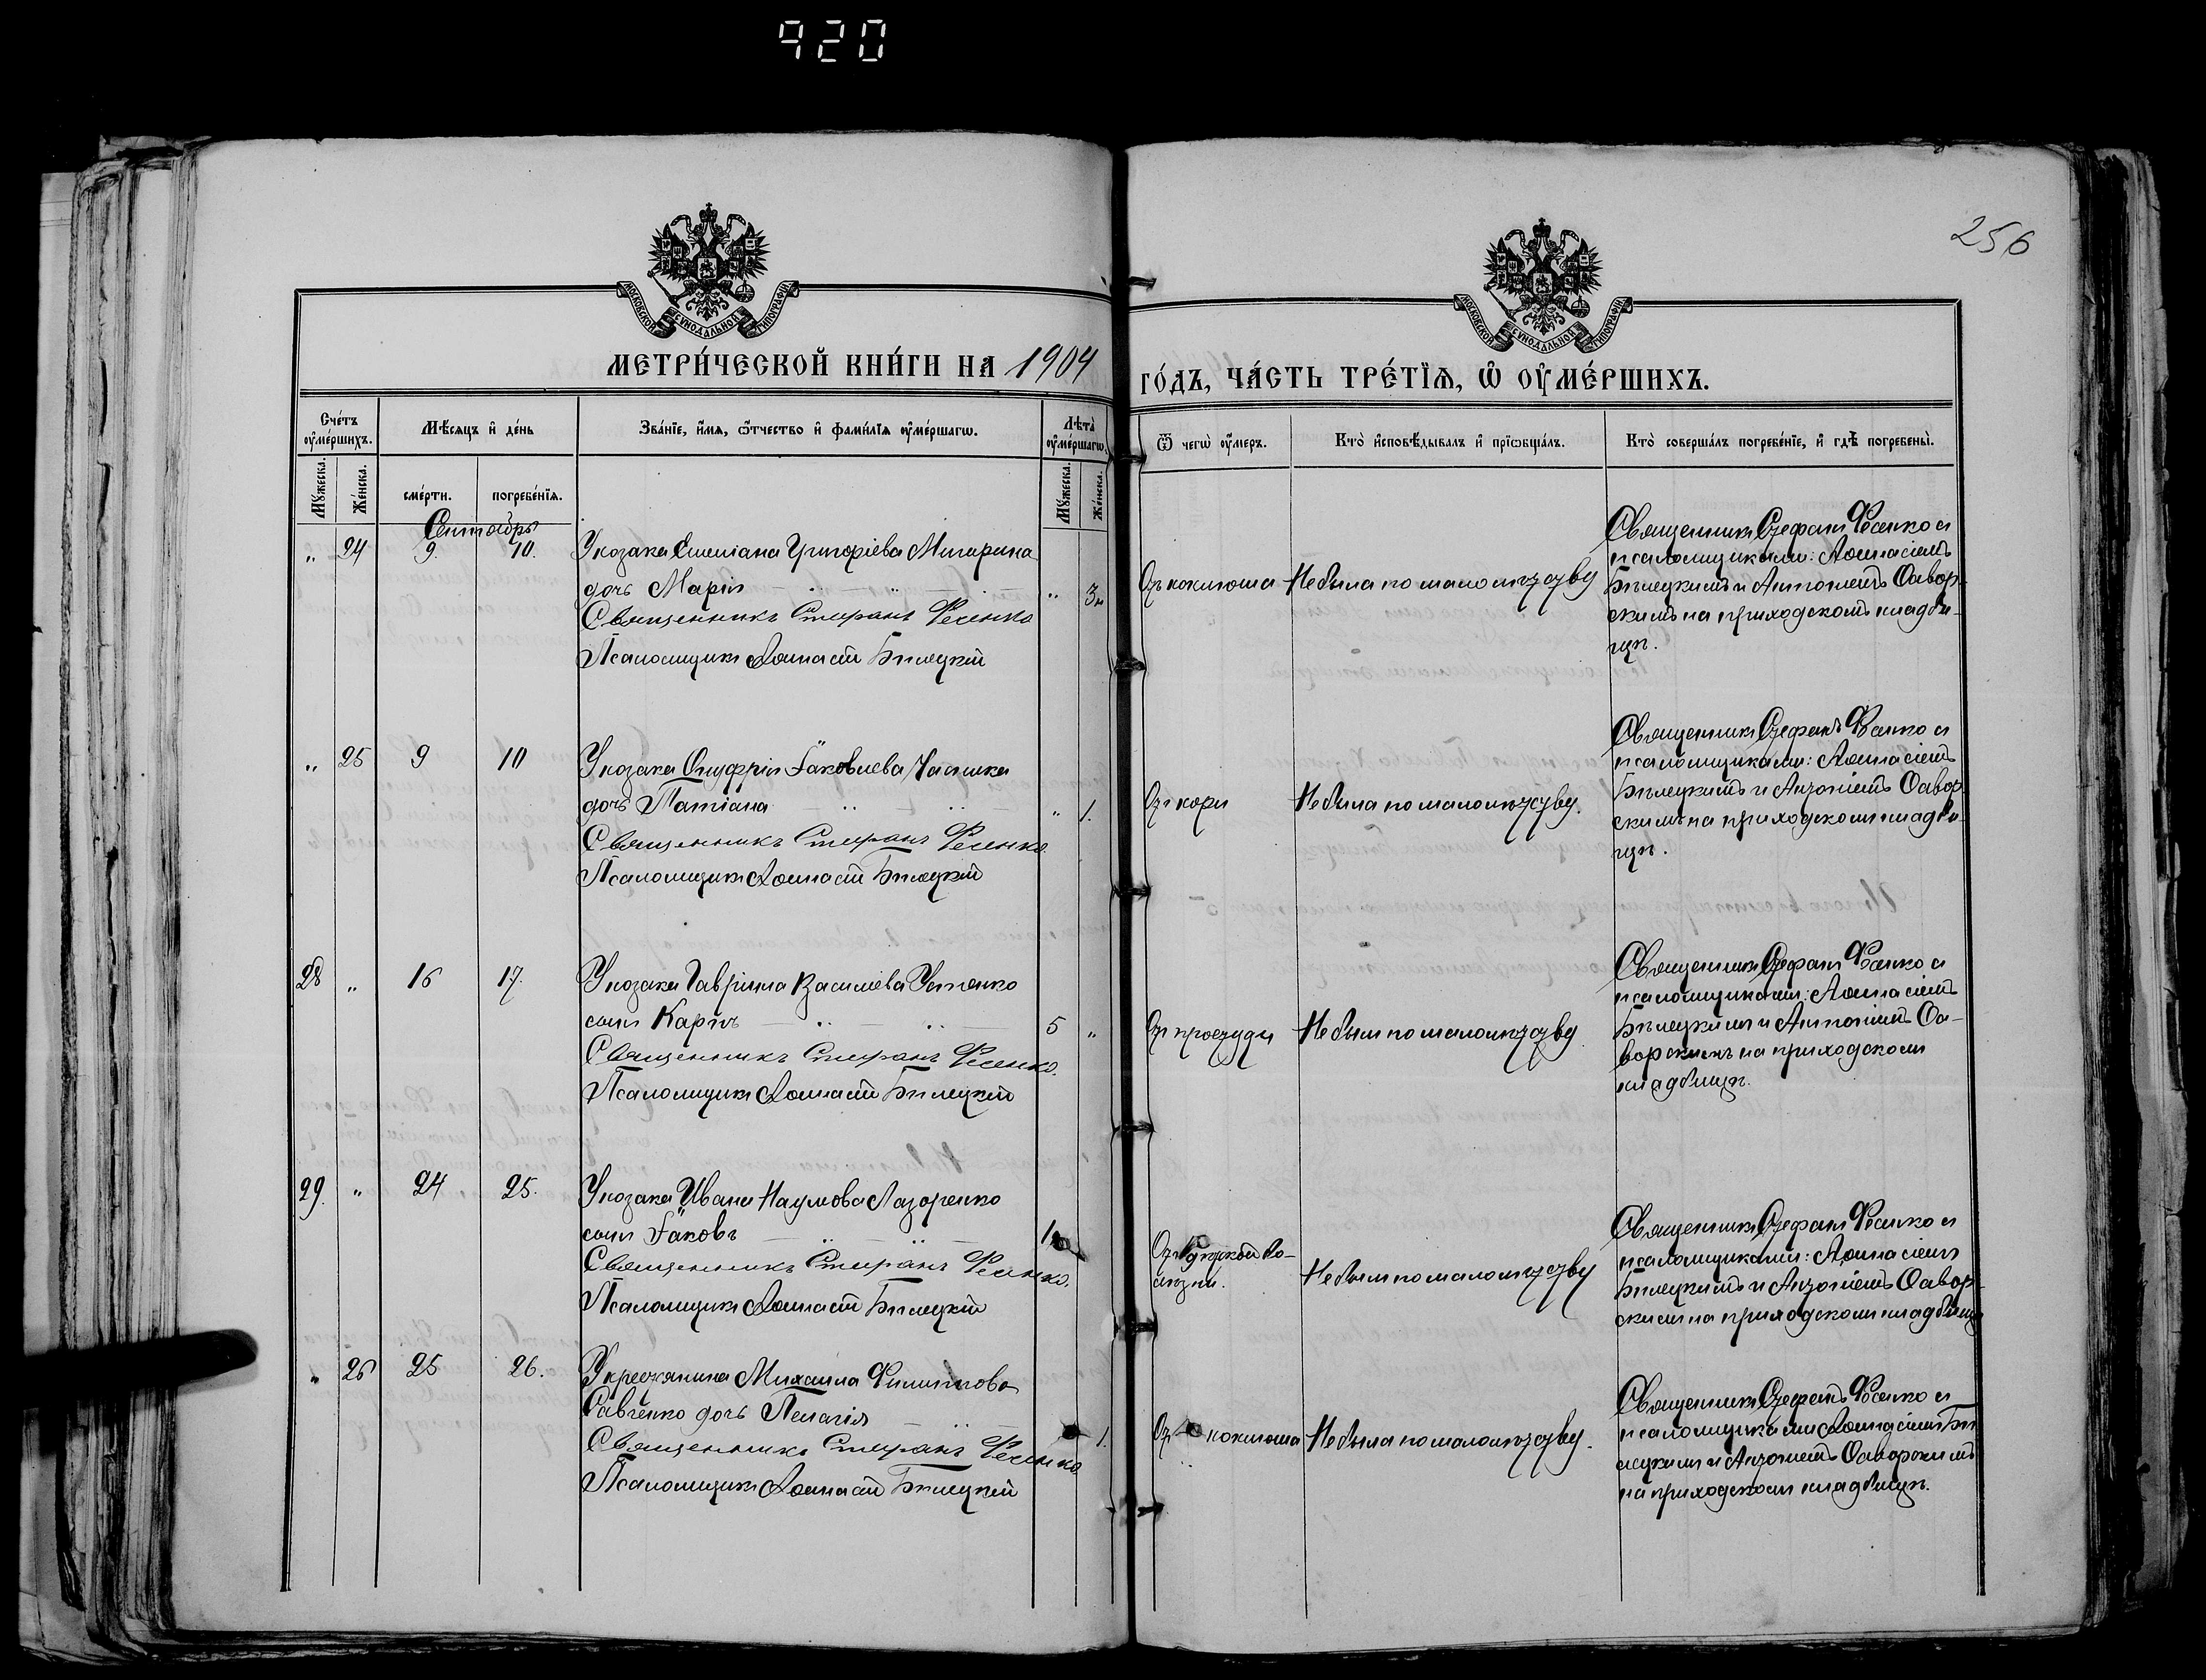 920
256
МОСКОВСКОЙ СѴНОДАЛЬНОЙ ТИПОГРАФІИ
МОСКОВСКОЙ СѴНОДАЛЬНОЙ ТИПОГРАФІИ
МЕТРИ́ЧЕСКОЙ КНИ́ГИ НА 1904
ГО́ДЪ, ЧА́СТЬ ТРЕ́ТІѦ, Ѡ ОУМЕ́РШИХЪ.
Сче́тъ оуме́ршихъ.
Мѣсяцъ и де́нь
Зва́нїе, и́мя, ѻ́тчество и фами́лїя оуме́ршагѡ.
Лѣта̀ оуме́ршагѡ.
Ѿ чегѡ̀ оу́меръ.
Кто̀ исповѣ́дывалъ и прїѡбща́лъ.
Кто̀ соверша́лъ погребе́нїе, и гдѣ̀ погребены̀.
Мꙋ́жеска.
Же́нска.
сме́рти.
погребе́нїя.
Мꙋ́жеска.
Же́нска.
Сентябрь
" 24 9. 10. У козака Емеліана Григоріева
дочь Марія " 3м
Священникъ Стефанъ Фесенко
Псаломщикъ Аѳанасій Бѣлецкій
Отъ коклюша
Не была по малолѣтству
Священникъ Стефанъ Фесенко и
псаломщиками: Аѳанасіемъ
Бѣлецкимъ и Антоніемъ Савор-
скимъ на приходскомъ кладби-
щѣ.
" 25 9 10 У козака Онуфрія Іаковлева
дочь Татіана " 1.
Священникъ Стефанъ Фесенко
Псаломщикъ Аѳанасій Бѣлецкій
Отъ кори
Не была по малолѣтству.
Священникъ Стефанъ Фесенко и
псаломщиками: Аѳанасіемъ
Бѣлецкимъ и Антоніемъ Савор-
скимъ на приходскомъ кладби-
щѣ.
28 " 16 17. У козака Гавріила Василіева Усенко
сынъ Карпъ 5 "
Священникъ Стефанъ Фесенко.
Псаломщикъ Аѳанасій Бѣлецкій
Отъ простуды
Не былъ по малолѣтству.
Священникъ Стефанъ Фесенко и
псаломщиками: Аѳанасіемъ
Бѣлецкимъ и Антоніемъ Са-
ворскимъ на приходскомъ
кладбищѣ.
29. " 24 25. У козака Ивана Наумова Лазоренко
сынъ Іаковъ
Священникъ Стефанъ Фесенко.
Псаломщикъ Аѳанасій Бѣлецкій
Отъ бо-
лѣзни.
Не былъ по малолѣтству
Священникъ Стефанъ Фесенко и
псаломщиками: Аѳанасіемъ
Бѣлецкимъ и Антоніемъ Савор-
скимъ на приходскомъ кладбищѣ
" 26 25 26. У крестянина Михаила Филиппова
Савченко дочь Пелагія 1.
Священникъ Стефанъ Фесенко
Псаломщикъ Аѳанасій Бѣлецкій
Отъ коклюша
Не была по малолѣтству.
Священникъ Стефанъ Фесенко и
псаломщиками Аѳанасіемъ Бѣ
лецкимъ и Антоніемъ Саворскимъ
на приходскомъ кладбищѣ.